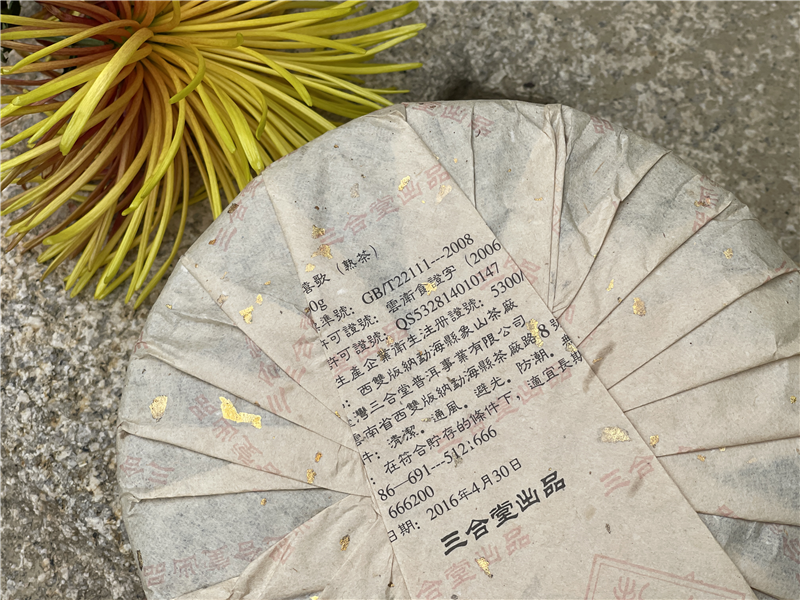 喜歌 (熟茶)
0g
準號: GB/T22111---2008
許可證號: 雲衛食證字 (2006
許可證號: QS532814010147
生產企業衛生注册證號: 5300/
: 西雙版納勐海縣象山茶廠
臺灣三合堂普洱事業有限公司
雲南省西雙版納勐海縣茶廠路 8 號
件: 清潔。通風。避光。防潮。
: 在符合貯存的條件下,適宜長期
86—691---512:666
666200
日期: 2016年4月30日
三合堂出品
三合堂出品